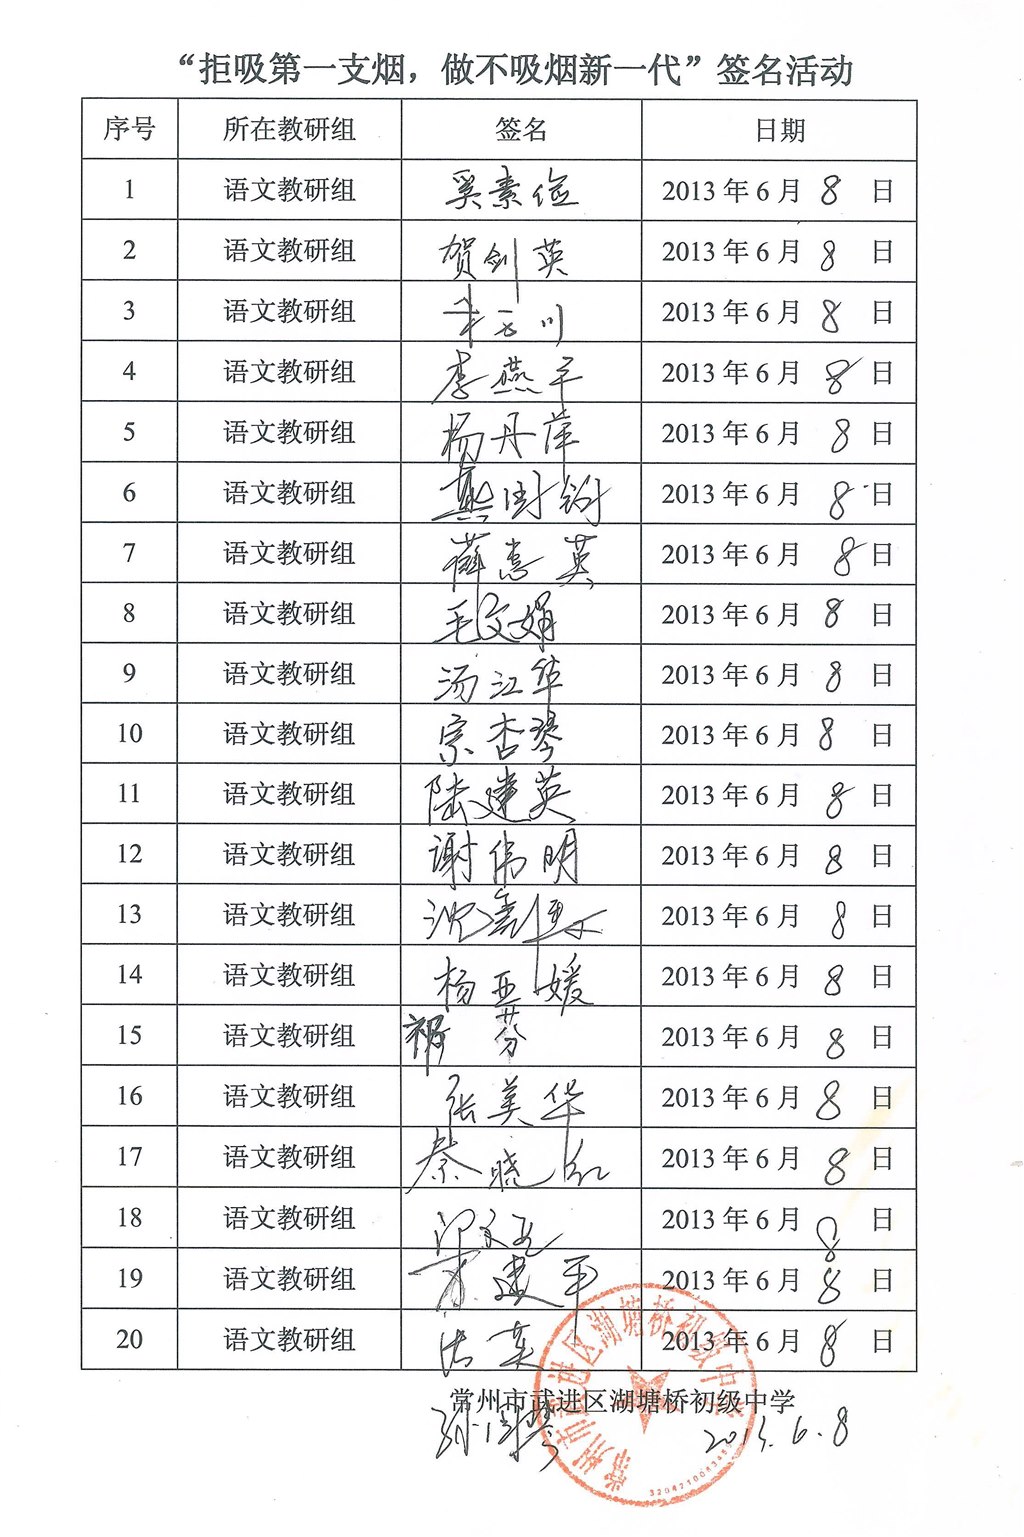 “拒吸第一支烟，做不吸烟新一代”签名活动
序号 所在教研组 签名 日期
1 语文教研组 奚素俭 2013年6月8日
2 语文教研组 贺剑英 2013年6月8日
3 语文教研组 2013年6月8日
4 语文教研组 李燕平 2013年6月8日
5 语文教研组 杨丹萍 2013年6月8日
6 语文教研组 2013年6月8日
7 语文教研组 薛惠英 2013年6月8日
8 语文教研组 毛文娟 2013年6月8日
9 语文教研组 汤江华 2013年6月8日
10 语文教研组 宗杏琴 2013年6月8日
11 语文教研组 陆建英 2013年6月8日
12 语文教研组 谢伟明 2013年6月8日
13 语文教研组 2013年6月8日
14 语文教研组 杨亚媛 2013年6月8日
15 语文教研组 芬 2013年6月8日
16 语文教研组 张美华 2013年6月8日
17 语文教研组 秦晓红 2013年6月8日
18 语文教研组 2013年6月8日
19 语文教研组 建平 2013年6月8日
20 语文教研组 2013年6月8日
常州市武进区湖塘桥初级中学
2013.6.8